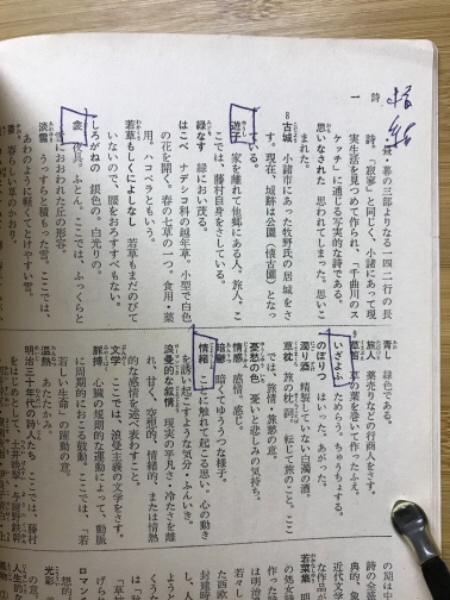 詩 一
昼・暮の三部よりなる一四二行の長
詩。「寂寥」と同じく、小諸にあって現
実生活を見つめて作られ、「千曲川のス
ケッチ」に通じる写実的な詩である。
思いなされた 思われてしまった。思いこ
まれた。
8 古城 小諸市にあった牧野氏の居城をさ
す。現在、城跡は公園（懐古園）となっ
ている。
遊子 家を離れて他郷にある人。旅人。こ
こでは、藤村自身をさしている。
緑なす 緑におい茂る。
はこべ ナデシコ科の越年草。小型で白色
の花を開く。春の七草の一つ。食用・薬
用。ハコベラともいう。
若草もしくによしなし 若草もまだのびて
いないので、腰をおろすすべもない。
しろがねの 銀色の。白光りの。
衾 夜具。ふとん。ここでは、ふっくらと
雪におおわれた丘の形容。
淡雪 うっすらと積もった雪。ここでは、
あわのように軽くてとけやすい雪。
春らしい草のかおり。
青し 緑色である。
旅人 薬売りなどの行商人をさす。
9 草笛 草の葉を巻いて作ったふえ。
いざよう ためらう。ちゅうちょする。
のぼりつ はいった。あがった。
濁り酒 精製していない白濁の酒。
草枕 旅の枕詞。転じて旅のこと。ここ
では、旅情・旅愁の意。
憂愁の色 憂いと悲しみの気持ち。
情感 感情。感じ。
暗鬱 暗くてゆううつな様子。
情緒 ことに触れて起こる思い。心の動き
を誘い起こすような気分・ふんいき。
浪漫的な叙情 現実の平凡さ・冷たさを離
れ、甘く、空想的、情緒的、または情熱
的な感情を述べ表わすこと。
文学 ここでは、浪漫主義の文学をさす。
脈搏 心臓の規則的な運動によって、動脈
に周期的におこる鼓動。ここでは、「若
若しい生命」の躍動の意。
温熱 あたたかみ。
明治三十年代の詩人たち ここでは、藤村
をはじめとして、土井晩翠、与謝野鉄幹
若菜集